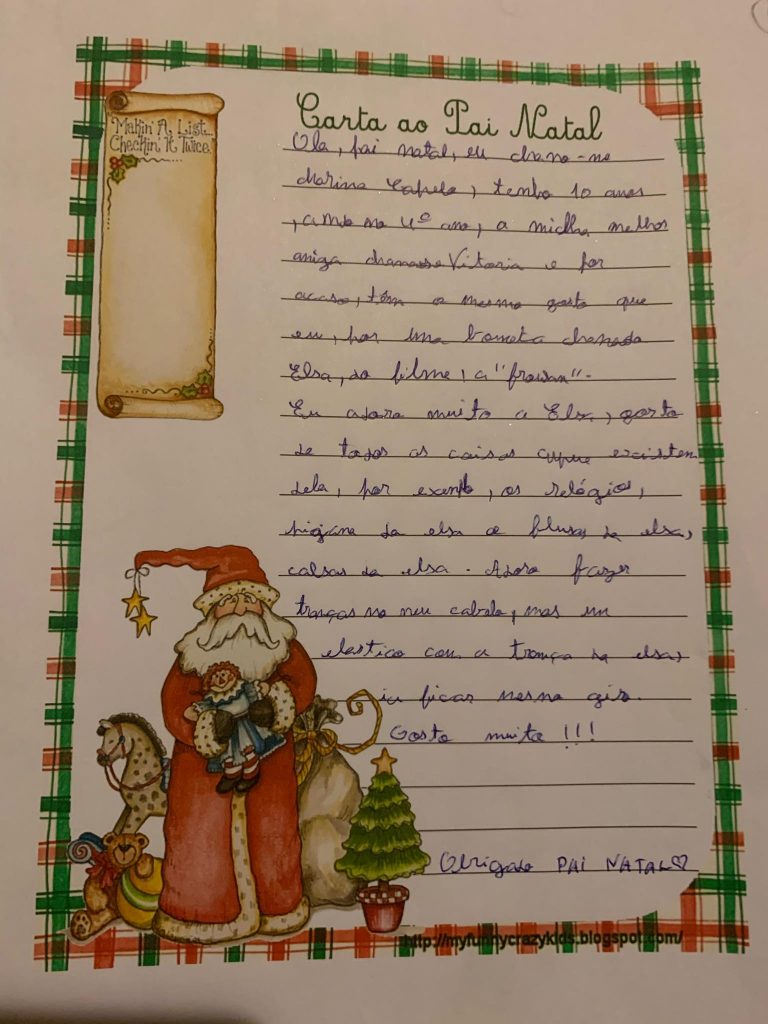 Makin' A List...
Checkin' It Twice.
Carta ao Pai Natal
Ola, pai natal, eu chamo-me
Marina Capela, tenho 10 anos
, ando no 4º ano, a minha melhor
amiga chamasse Vitoria e por
acaso, têm o mesmo gosto que
eu, por uma boneca chamada
Elsa, do filme, a "frowsan".
Eu adoro muito a Elsa, gosto
de todos as coisas que existem
dela, por exemplo, os relógios,
pigana da elsa a blusa da elsa,
calsas da elsa. Adoro fazer
tranças no meu cabelo, mas um
elastico com a trança da elsa,
ia ficar mesmo giro.
Gosto muito !!!
Obrigado PAI NATAL♡
http://myfunnycrazykids.blogspot.com/